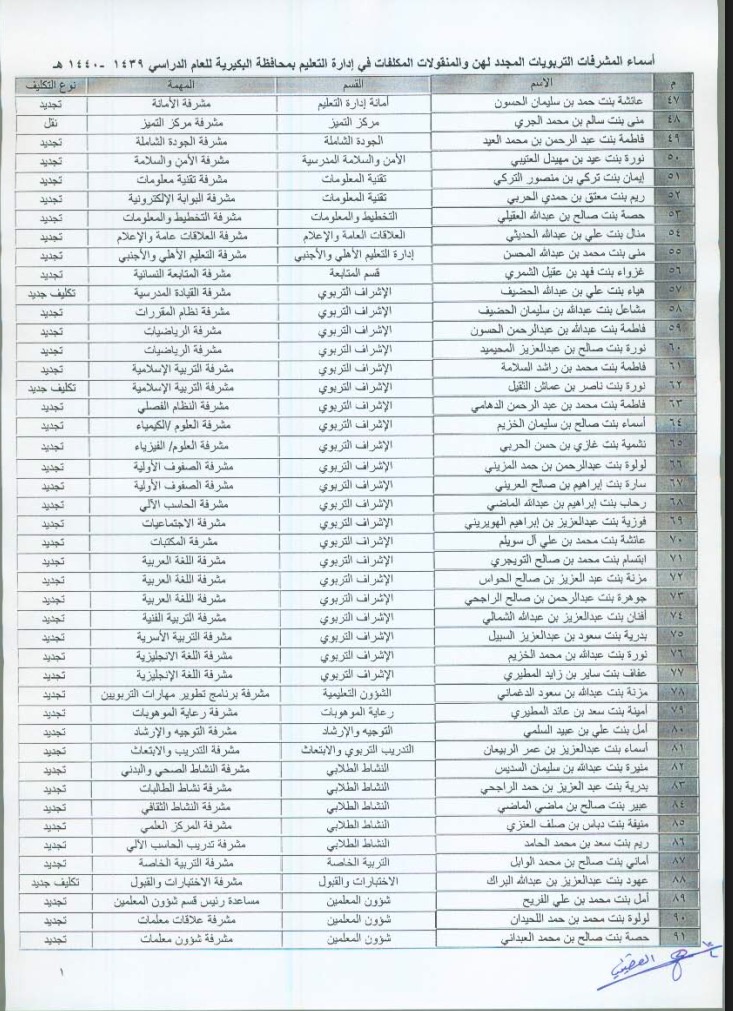 أسماء المشرفات التربويات المجدد لهن والمنقولات المكلفات في إدارة التعليم بمحافظة البكيرية للعام الدراسي ١٤٣٩ - ١٤٤٠ هـ
م الاسم القسم المهمة نوع التكليف
٤٧ عائشة بنت حمد بن سليمان الحسون أمانة إدارة التعليم مشرفة الأمانة تجديد
٤٨ منى بنت سالم بن محمد الجري مركز التميز مشرفة مركز التميز نقل
٤٩ فاطمة بنت عبد الرحمن بن محمد العيد الجودة الشاملة مشرفة الجودة الشاملة تجديد
٥٠ نورة بنت عيد بن مهيدل العتيبي الأمن والسلامة المدرسية مشرفة الأمن والسلامة تجديد
٥١ إيمان بنت تركي بن منصور التركي تقنية المعلومات مشرفة تقنية معلومات تجديد
٥٢ ريم بنت معتق بن حمدي الحربي تقنية المعلومات مشرفة البوابة الإلكترونية تجديد
٥٣ حصة بنت صالح بن عبدالله العقيلي التخطيط والمعلومات مشرفة التخطيط والمعلومات تجديد
٥٤ منال بنت علي بن عبدالله الحديثي العلاقات العامة والإعلام مشرفة العلاقات عامة والإعلام تجديد
٥٥ منى بنت محمد بن عبدالله المحسن إدارة التعليم الأهلي والأجنبي مشرفة التعليم الأهلي والأجنبي تجديد
٥٦ غزواء بنت فهد بن عقيل الشمري قسم المتابعة مشرفة المتابعة النسائية تجديد
٥٧ هياء بنت علي بن عبدالله الحضيف الإشراف التربوي مشرفة القيادة المدرسية تكليف جديد
٥٨ مشاعل بنت عبدالله بن سليمان الحضيف الإشراف التربوي مشرفة نظام المقررات تجديد
٥٩ فاطمة بنت عبدالله بن عبدالرحمن الحسون الإشراف التربوي مشرفة الرياضيات تجديد
٦٠ نورة بنت صالح بن عبدالعزيز المحيميد الإشراف التربوي مشرفة الرياضيات تجديد
٦١ فاطمة بنت محمد بن راشد السلامة الإشراف التربوي مشرفة التربية الإسلامية تجديد
٦٢ نورة بنت ناصر بن عماش الثقيل الإشراف التربوي مشرفة التربية الإسلامية تكليف جديد
٦٣ فاطمة بنت محمد بن عبد الرحمن الدهامي الإشراف التربوي مشرفة النظام الفصلي تجديد
٦٤ أسماء بنت صالح بن سليمان الخزيم الإشراف التربوي مشرفة العلوم /الكيمياء تجديد
٦٥ نشمية بنت غازي بن حسن الحربي الإشراف التربوي مشرفة العلوم/ الفيزياء تجديد
٦٦ لولوة بنت عبدالرحمن بن حمد المزيني الإشراف التربوي مشرفة الصفوف الأولية تجديد
٦٧ سارة بنت إبراهيم بن صالح العريني الإشراف التربوي مشرفة الصفوف الأولية تجديد
٦٨ رحاب بنت إبراهيم بن عبدالله الماضي الإشراف التربوي مشرفة الحاسب الآلي تجديد
٦٩ فوزية بنت عبدالعزيز بن إبراهيم الهويريني الإشراف التربوي مشرفة الاجتماعيات تجديد
٧٠ عائشة بنت محمد بن علي آل سويلم الإشراف التربوي مشرفة المكتبات تجديد
٧١ ابتسام بنت محمد بن صالح التويجري الإشراف التربوي مشرفة اللغة العربية تجديد
٧٢ مزنة بنت عبد العزيز بن صالح الحواس الإشراف التربوي مشرفة اللغة العربية تجديد
٧٣ جوهرة بنت عبدالرحمن بن صالح الراجحي الإشراف التربوي مشرفة اللغة العربية تجديد
٧٤ أفنان بنت عبدالعزيز بن عبدالله الشمالي الإشراف التربوي مشرفة التربية الفنية تجديد
٧٥ بدرية بنت سعود بن عبدالعزيز السبيل الإشراف التربوي مشرفة التربية الأسرية تجديد
٧٦ نورة بنت عبدالله بن محمد الخزيم الإشراف التربوي مشرفة اللغة الانجليزية تجديد
٧٧ عفاف بنت ساير بن زايد المطيري الإشراف التربوي مشرفة اللغة الإنجليزية تجديد
٧٨ مزنة بنت عبدالله بن سعود الدغماني الشؤون التعليمية مشرفة برنامج تطوير مهارات التربويين تجديد
٧٩ أمينة بنت سعد بن عائد المطيري رعاية الموهوبات مشرفة رعاية الموهوبات تجديد
٨٠ أمل بنت علي بن عبيد السلمي التوجيه والإرشاد مشرفة التوجيه والإرشاد تجديد
٨١ أسماء بنت عبدالعزيز بن عمر الربيعان التدريب التربوي والابتعاث مشرفة التدريب والابتعاث تجديد
٨٢ منيرة بنت عبدالله بن سليمان السديس النشاط الطلابي مشرفة النشاط الصحي والبدني تجديد
٨٣ بدرية بنت عبد العزيز بن حمد الراجحي النشاط الطلابي مشرفة نشاط الطالبات تجديد
٨٤ عبير بنت صالح بن ماضي الماضي النشاط الطلابي مشرفة النشاط الثقافي تجديد
٨٥ منيفة بنت دباس بن صلف العنزي النشاط الطلابي مشرفة المركز العلمي تجديد
٨٦ ريم بنت سعد بن محمد الحامد النشاط الطلابي مشرفة تدريب الحاسب الآلي تجديد
٨٧ أماني بنت صالح بن محمد الوابل التربية الخاصة مشرفة التربية الخاصة تجديد
٨٨ عهود بنت عبدالعزيز بن عبدالله البراك الاختبارات والقبول مشرفة الاختبارات والقبول تكليف جديد
٨٩ أمل بنت محمد بن علي الفريح شؤون المعلمين مساعدة رئيس قسم شؤون المعلمين تجديد
٩٠ لولوة بنت محمد بن حمد اللحيدان شؤون المعلمين مشرفة علاقات معلمات تجديد
٩١ حصة بنت صالح بن محمد العبداني شؤون المعلمين مشرفة شؤون معلمات تجديد
١